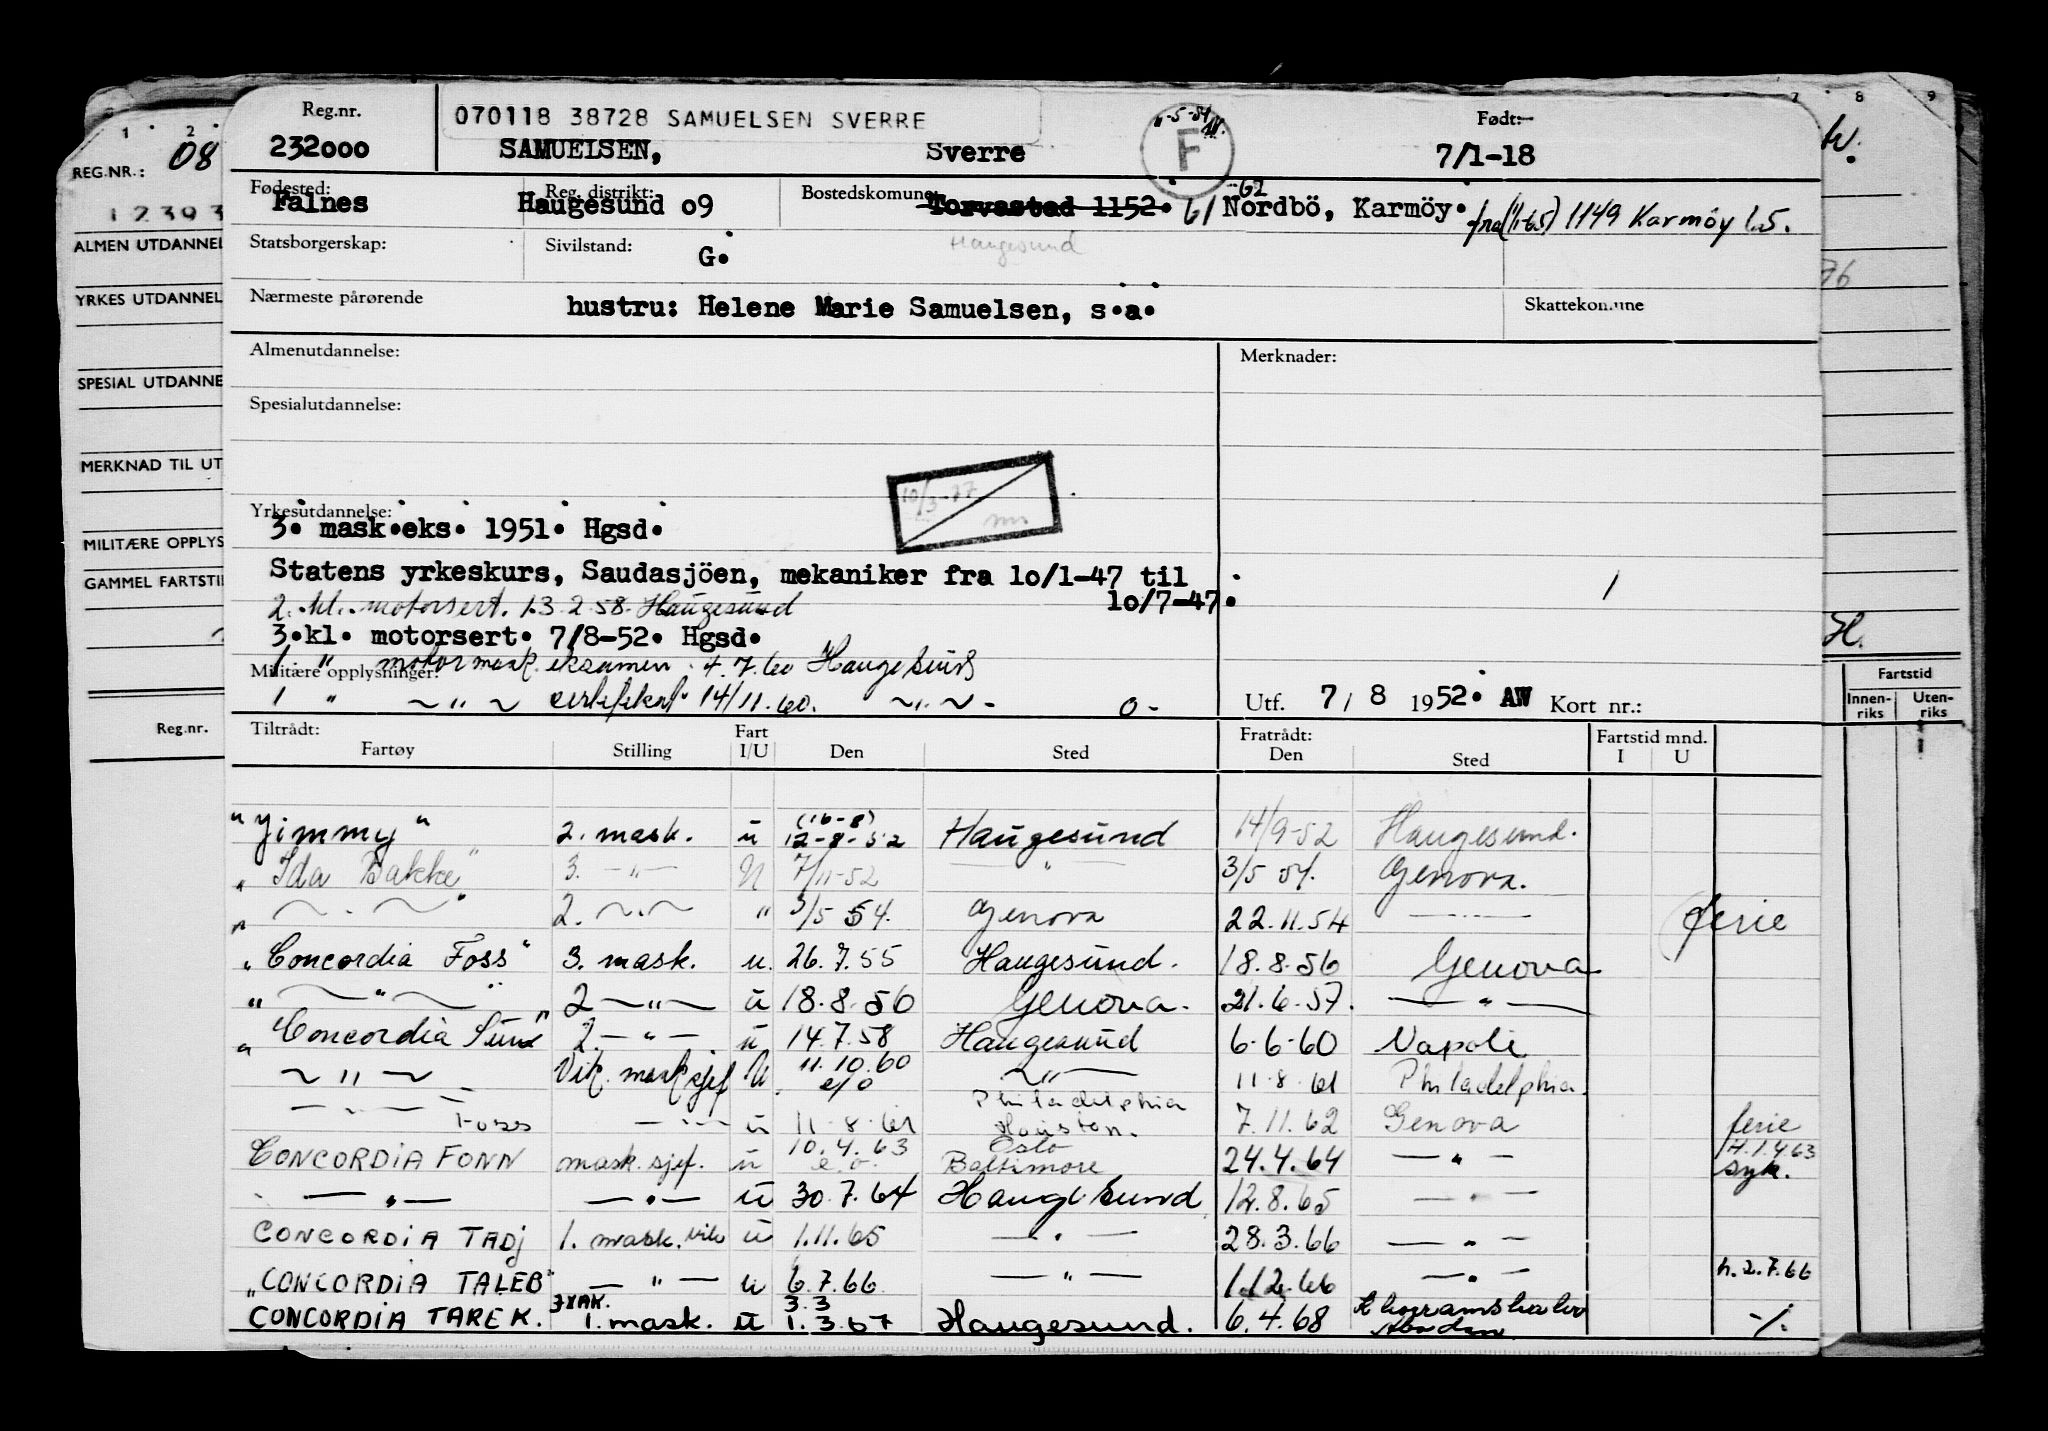 1 2 7 8 9
REG.NR.: 08
12393
ALMEN UTDANNEL
YRKES UTDANNEL
SPESIAL UTDANNE
MERKNAD TIL UT
MILITÆRE OPPLYS
GAMMEL FARTSTI
Reg.nr.
Reg.nr. 070118 38728 SAMUELSEN SVERRE F Født:
232000 SAMUELSEN, Sverre 7/1-18
Fødested: Reg. distrikt: Bostedskomune:
Falnes Haugesund o9 Torvastad 1152. 61 Nordbö, Karmöy. fra (1/1-65) 1149 Karmöy l.5.
Statsborgerskap: Sivilstand: G. Haugesund
Nærmeste pårørende hustru: Helene Marie Samuelsen, s.a. Skattekomune
Almenutdannelse: Merknader:
Spesialutdannelse:
10/3-77
Yrkesutdannelse:
3. mask.eks. 1951. Hgsd.
Statens yrkeskurs, Saudasjöen, mekaniker fra 1o/1-47 til
2. kl. motorsert. 13.2.58. Haugesund 1o/7-47.
3.kl. motorsert. 7/8-52. Hgsd.
1 " motormask. eksamen. 4.7.60 Haugesund
Militære opplysninger:
1 " ~ " ~ 14/11.60. ~ " ~ - 0 - Utf. 7/ 8 1952. AW Kort nr.:
H.
Fartstid
Innenriks Utenriks
Tiltrådt: Fart Fratrådt: Fartstid mnd.
Fartøy Stilling I/U Den Sted Den Sted I U
(16-8)
"Jimmy" 2. mask. u 12-8-52 Haugesund 14/9-52 Haugesund.
"Ida Bakke" 3. -"- U 7/11-52 — " — 3/5 54. Genova.
" ~ . ~ " 2. ~ . ~ " 3/5 54. Genova 22.11.54 — ferie
"Concordia Foss" 3. mask. u. 26.7.55 Haugesund. 18.8.56 Genova
" ~ " ~ " 2 ~ " ~ u 18.8.56 Genova. 21.6.57. — " —
"Concordia Sun" 2. — " — u 14.7.58 Haugesund 6.6.60 Napoli
~ " ~ Vik. mask sjef U 11.10.60 ~ " — 11.8.61 Philadelphia.
e/o
— " — Foss — " — u 11.8.61 Philadelphia Houston. 7.11.62 Genova ferie
CONCORDIA FONN mask. sjef. u 10.4.63 e.o. Oslo Baltimore 24.4.64 — " — H.1.4.63 syk.
— " — — " — u 30.7.64 Haugesund 12.8.65 — " —
CONCORDIA TADJ 1. mask. vik u 1.11.65 — " — 28.3.66 — " —
"CONCORDIA TALEB" — " — u 6.7.66 — " — 1.12.66 — " — h.2.7.66
CONCORDIA TAREK. 1. mask. u 3.3 1.3.67 Haugesund. 6.4.68 -/.